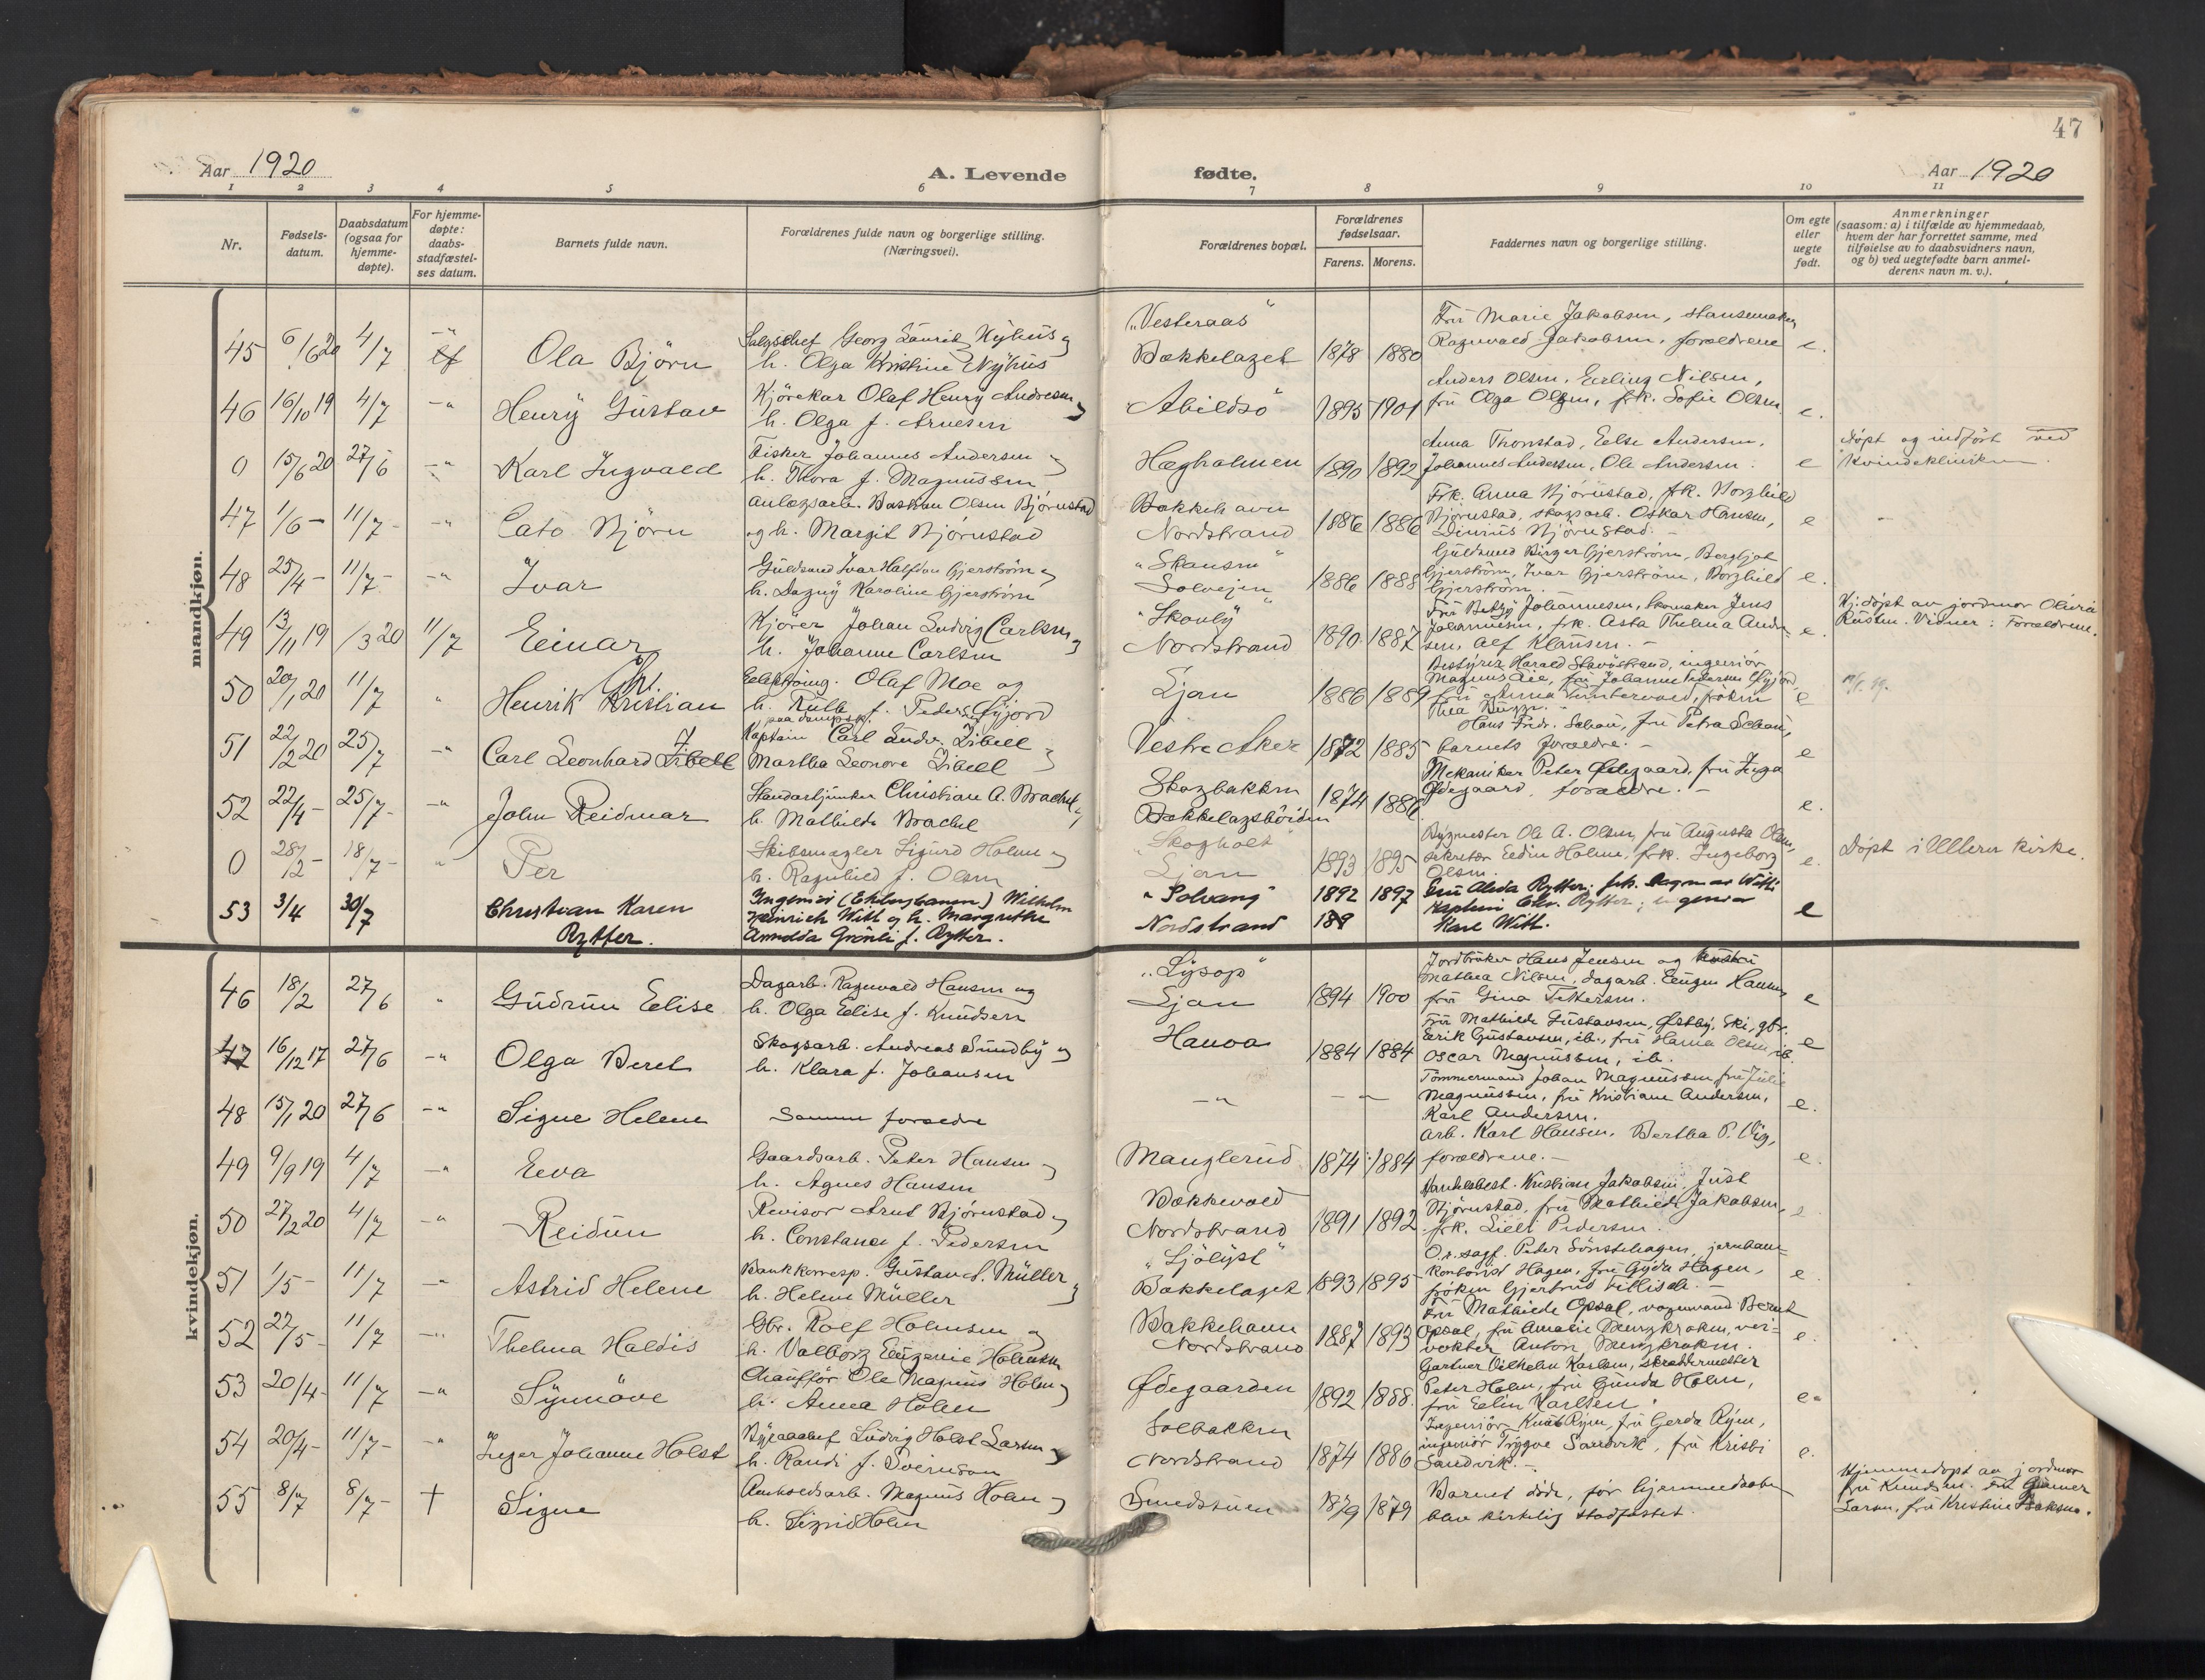 47
Aar 1920
A. Levende
fødte.
Aar 1920
1 2 3 4 5 6 7 8 9 10 11
Nr.
Fødsels-
datum.
Daabsdatum
(ogsaa for
hjemme-
døpte).
For hjemme-
døpte:
daabs-
stadfæstel-
ses datum.
Barnets fulde navn.
Forældrenes fulde navn og borgerlige stilling.
(Næringsvei).
Forældrenes bopæl.
Forældrenes
fødselsaar.
Farens. Morens.
Faddernes navn og borgerlige stilling.
Om egte
eller
uegte
født.
Anmerkninger
(saasom: a) i tilfælde av hjemmedaab,
hvem der har forrettet samme, med
tilføielse av to daabsvidners navn,
og b) ved uegtefødte barn anmel-
derens navn m. v.).
mandkjøn.
45 6/6 20 4/7 Ola Björn
Georg Laurits Nyhus og
h. Olga Kristine Nyhus
"Vesteraas"
Bækkelaget 1878 1880
Fru Marie Jakobsen,
Ragnvald Jakobsen, forældrene e.
46 16/10 19 4/7 -"- Henry Gustav
Kjörekar Olaf Henry Andresen og
h. Olga f. Arnesen
Abildsö 1895 1901
Anders Olsen, Erling Nilsen,
fru Olga Olsen, frk. Sofie Olsen. e.
0 15/6 20 27/6 -"- Karl Ingvald
Fisker Johannes Andersen og
h. Thora f. Magnussen
Hægholmen 1890 1892
Anna Thonstad, Else Andersen,
Johannes Andersen, Ole Andersen. e
Döpt og indfört ved
Kvindekliniken.
47 1/6 - 11/7 - -"- Cato Björn
Anlægsarb. Bastian Olsen Björnstad
og h. Margit Björnstad
Bækkehavn
Nordstrand 1886 1886
Frk. Anna Björnstad, frk. Borghild
Björnstad, skogsarb. Oskar Hansen,
Dinius Björnstad. - e
48 25/4 - 11/7 - -"- Ivar
Guldsmed Ivar Halfdan Gjerström og
h. Dagny Karoline Gjerström
"Skansen"
Solveien 1886 1888
Guldsmed Birger Gjerström, Bergljot
Gjerström, Ivar Gjerström, Borghild
Gjerström. e.
49 13/11 19 /3 20 11/7 Einar
Kjörer Johan Ludvig Carlsen og
h. Johanne Carlsen
"Skovly"
Nordstrand 1890 1887
Fru Betzy Johannesen, skomaker Jens
Johannesen, frk. Asta Thelma Ander-
sen, Alf Klausen. - e.
Hj. döpt av jordmor Olivia
Rusten. Vidner: Forældrene.
50 20/1 20 11/7 " Henrik Kristian
Chr
Olaf Moe og
h. Ruth f. Pedersen Gjöfjord
Ljan 1886 1889
Bestyrer Harald Stavöstrand, ingeniör
Magnus Lie, fru Johanne Pedersen
fru Anna Vintervold, fröken
Thea Bugge. e
51 22/2 20 25/7 -"- Carl Leonhard Zibell
paa dampsk.
Kaptein Carl Ludv. Zibell og
Martha Leonore Zibell
Vestre Aker 1872 1885
Hans Fredr. Schau, fru Petra Schau,
barnets forældre. - e
52 22/4 - 25/7 - -"- John Reidmar
Standartjunker Christian A. Brachel og
h. Mathilde Brachel
Skogbakken
Bækkelagshöiden 1874 1886
Mekaniker Peter Ødegaard, fru Inga
Ødegaard, forældre. - e.
0 28/2 - 18/7 - " Per
Skibsmægler Sigurd Holme og
h. Ragnhild f. Olsen
"Skogholt"
Ljan 1893 1895
Bygmester Ole A. Olsen, fru Augusta Olsen,
sekretær Edin Holme, frk. Ingeborg
Olsen. e.
Döpt i Ullern kirke.
53 3/4 30/7 Christian Karen
Rytter.
Ingeniør Wilhelm
Heinrich Witt og h. Margrethe
Annalda Grönli f. Rytter.
"Solvang"
Nordstrand 1892 1897
189
Fru Alida Rytter; frk. Dagmar Witt;
Kaptein Chr. Rytter; ingeniør
Karl Witt. e
kvindekjøn.
46 18/2 27/6 " Gudrun Elise
Dagarb. Ragnvald Hansen og
h. Olga Elise f. Knudsen
"Lysop"
Ljan 1894 1900
Jordbruker Hans Jensen og hustru
Mathea Nilsen, dagarb. Eugen Hansen,
fru Gina Pettersen. e
47 16/12 17 27/6 -"- Olga Beret
Skogsarb. Andreas Sundby og
h. Klara f. Johansen
Hauva 1884 1884
Fru Mathilde Gustavsen, Østby, Ski, gbr.
Erik Gustavsen, ib., fru Hanna Olsen, ib.
Oscar Magnussen, ib. e
48 15/1 20 27/6 -"- Signe Helene
Samme forældre
-"- -"-
Tömmermand Johan Magnussen, fru Julie
Magnussen, fru Kristiane Andersen,
Karl Andersen. e.
49 9/9 19 4/7 -"- Eva
Gaardsarb. Peter Hansen og
h. Agnes Hansen
Manglerud 1874 1884
Arb. Karl Hansen, Bertha P. Vig,
forældrene. - e.
50 27/2 20 4/7 -"- Reidun
Revisor Arnt Björnstad og
h. Constance f. Pedersen
Bækkevold
Nordstrand 1891 1892
Handelsbest. Kristian Jakobsen, Just
Björnstad, fru Mathilde Jakobsen,
frk. Lilli Pedersen. e
51 1/5 - 11/7 -"- Astrid Helene
Bankkorresp. Gustav A. Müller og
h. Helene Müller
"Sjölyst"
Bækkelaget 1893 1895
O.r.sagf. Peder Sönstehagen, jernban-
kontorist Hagen, fru Gyda Hagen,
fröken Gjertrud Tillisch. - e
52 22/5 - 11/7 -"- Thelma Haldis
Gbr. Rolf Holmsen og
h. Valborg Eugenie Holmsen
Bækkehavn
Nordstrand 1887 1893
Fru Mathilde Opsal, vognmand Bernt
Opsal, fru Amalie Mengkroken, vei-
vokter Anton Mengkroken. e.
53 20/4 - 11/7 -"- Synnöve
Chaufför Ole Magnus Holm og
h. Anna Holm
Ødegaarden 1892 1888
Gartner Vilhelm Karlsen, skræddermester
Peter Holm, fru Gunda Holm,
fru Elin Karlsen. e.
54 20/4 - 11/7 - -"- Inger Johanne Holst
Ludvig Holst Larsen og
h. Randi f. Sveinson
Solbakken
Nordstrand 1874 1886
Ingeniör Knut Rym, fru Gerda Rym,
ingeniör Trygve Sandvik, fru Kristi
Sandvik. - e.
55 8/7 8/7 - † Signe
Magnus Holm og
h. Sigrid Holm
Smedstuen 1879 1879
Barnet döde, för hjemmedaaben
blev kirkelig stadfæstet.
Hjemmedöpt av jordmor
fru Knudsen. Gunner
Larsen, fru Kristine